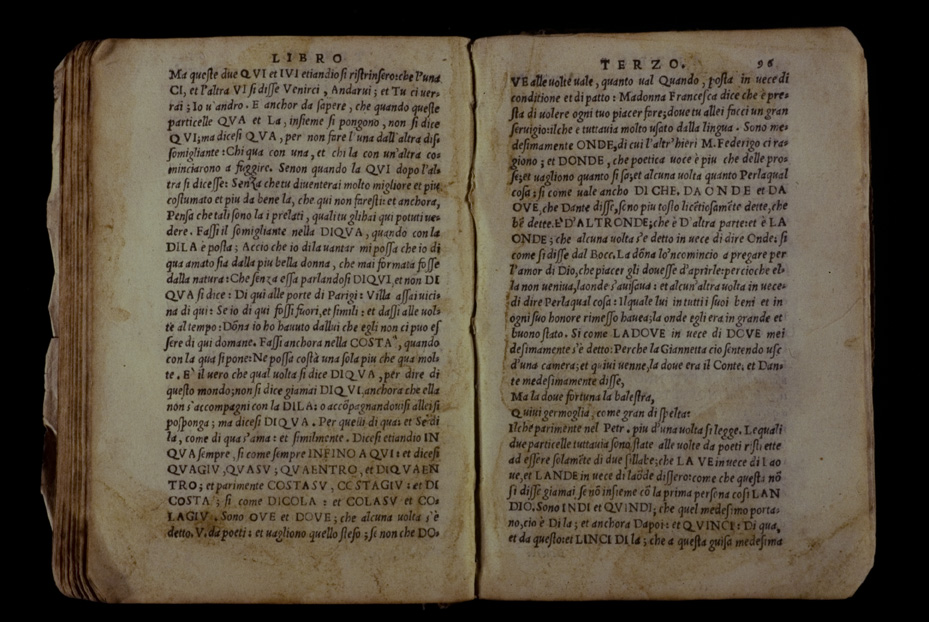 LIBRO
Ma queste due QVI et IVI etiandio si ristrinsero: che l'una
CI, et l'altra VI si disse Venirci, Andarui; et Tu ci ver-
rai; Io u'andro. E anchor da sapere, che quando queste
particelle QVA et La, insieme si pongono, non si dice
QVI; ma dicesi QVA, per non fare l'una dall'altra dis-
somigliante: Chi qua con una, et chi la con un'altra co-
minciarono a fuggire. Senon quando la QVI dopo l'al-
tra si dicesse: Senza che tu diuenterai molto migliore et piu
costumato et piu da bene la, che qui non faresti: et anchora,
Pensa che tali sono la i prelati, quali tu gli hai qui potuti ue-
dere. Fassi il somigliante nella DIQVA, quando con la
DILA è posta; Accio che io di la uantar mi possa che io di
qua amato sia dalla piu bella donna, che mai formata fosse
dalla natura: Che senza essa parlandosi DIQVI, et non DI
QVA si dice: Di qui alle porte di Parigi: Villa assai uici-
na di qui: Se io di qui fossi fuori, et simili: et dassi alle uol-
te al tempo: Dōna io ho hauuto dallui che egli non ci puo es
sere di qui domane. Fassi anchora nella COSTA, quando
con la qua si pone: Ne possa costà una sola piu che qua mol-
te. E' il uero che qual uolta si dice DIQVA, per dire di
questo mondo; non si dice giamai DIQVI, anchora che ella
non s'accompagni con la DILA: o accōpagnandouisi allei si
posponga; ma dicesi DIQVA. Per quelli di qua: et Se di
la, come di qua s'ama: et similmente. Dicesi etiandio IN
QVA sempre, si come sempre INFINO AQVI: et dicesi
QVAGIV, QVASV; QVAENTRO, et DIQVAEN
TRO; et parimente COSTASV, COSTAGIV: et DI
COSTA; si come DICOLA: et COLASV et CO-
LAGIV. Sono OVE et DOVE; che alcuna uolta s'è
detto V. da poeti: et uagliono quello stesso; se non che DO-
TERZO. 96
VE alle uolte uale, quanto ual Quando, posta in uece di
conditione et di patto: Madonna Francesca dice che è pre-
sta di uolere ogni tuo piacer fare; doue tu allei facci un gran
seruigio: ilche è tuttauia molto usato dalla lingua. Sono me-
desimamente ONDE, di cui l'altr'hieri M. Federigo ci ra-
giono; et DONDE, che poetica uoce è piu che delle pro-
se; et uagliono quanto si sa; et alcuna uolta quanto Perlaqual
cosa; si come uale ancho DI CHE. DAONDE et DA
OVE, che Dante disse, sono piu tosto licētiosamēte dette, che
bē dette. E' D'ALTRONDE; che è D'altra parte: et è LA
ONDE; che alcuna uolta s'è detto in uece di dire Onde: si
come si disse dal Bocc. La dōna lo'ncomincio a pregare per
l'amor di Dio, che piacer gli douesse d'aprirle: percioche el-
la non ueniua, laonde s'auisaua: et alcun'altra uolta in uece
di dire Perlaqual cosa: Il quale lui in tutti i suoi beni et in
ogni suo honore rimesso hauea; la onde egli era in grande et
buono stato. Si come LADOVE in uece di DOVE mei
desimamente s'è detto: Perche la Giannetta cio sentendo usc
d'una camera; et quiui uenne, la doue era il Conte. et Dan-
te medesimamente disse,
Ma la doue fortuna la balestra,
Quiui germoglia, come gran di spelta:
Ilche parimente nel Petr. piu d'una uolta si legge. Lequali
due particelle tuttauia sono state alle uolte da poeti ristrette
ad essere solamēte di due sillabe; che LA VE in uece di Lao
ue, et LANDE in uece di laōde dissero: come che questi nō
si disse giamai se nō insieme cō la prima persona cosi LAN
DIO. Sono INDI et QVINDI; che quel medesimo porta-
no, cio è Di la; et anchora Dapoi: et QVINCI: Di qua,
et da questo: et LINCI Di la; che a questa guisa medesima